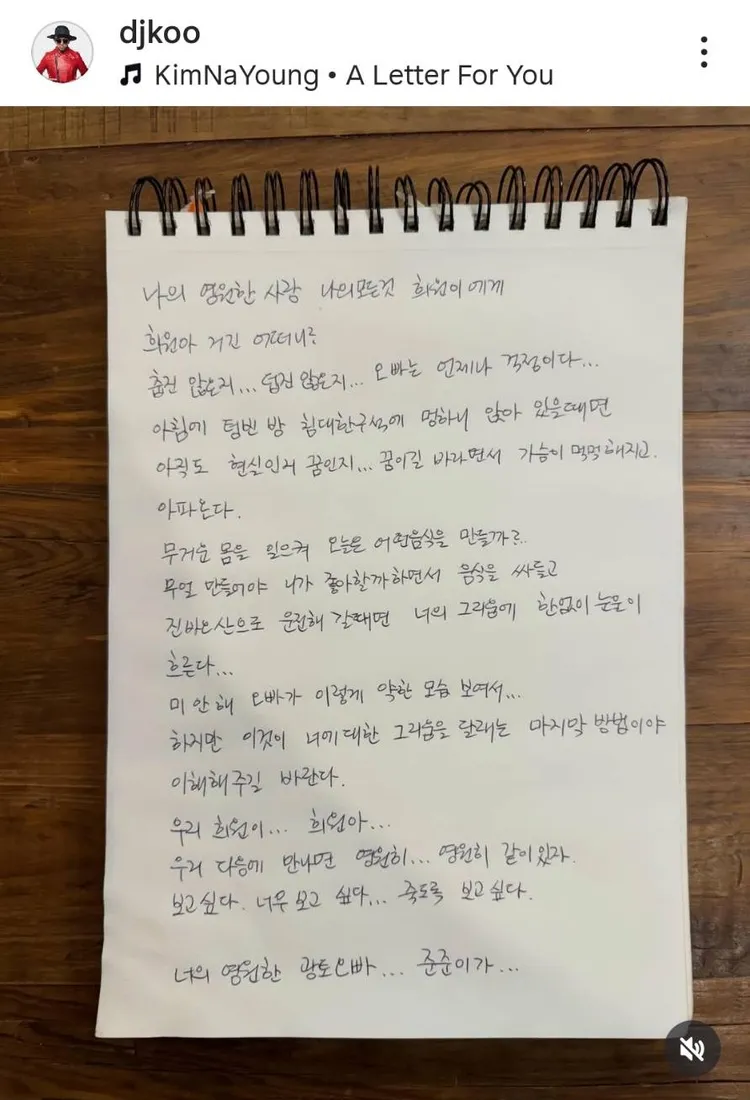 djkoo
KimNaYoung • A Letter For You
나의 영원한 사랑 나의모든것 희원이에게
희원아 거긴 어떠니?
춥진 않은지... 덥진 않은지... 오빠는 언제나 걱정이다...
아침에 텅빈 방 침대한구석에 멍하니 앉아 있을때면
아직도 현실인지 꿈인지... 꿈이길 바라면서 가슴이 먹먹해지고.
아파온다.
무거운 몸을 일으켜 오늘은 어떤음식을 만들까?..
무얼 만들어야 니가 좋아할까하면서 음식을 싸들고
진바오산으로 운전해 갈때면 너의 그리움에 한없이 눈물이
흐른다...
미안해 오빠가 이렇게 약한 모습 보여서...
하지만 이것이 너에대한 그리움을 달래는 마지막 방법이야
이해해주길 바란다.
우리 희원이... 희원아...
우리 다음에 만나면 영원히... 영원히 같이있자.
보고싶다. 너무 보고 싶다... 죽도록 보고싶다.
너의 영원한 광토오빠... 준준이가...